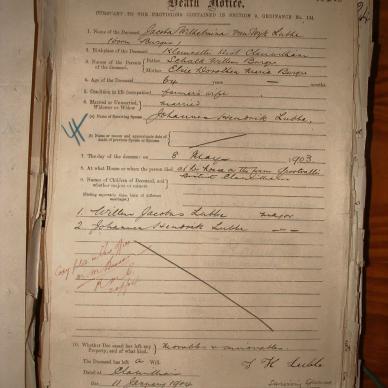 Death Notice.
PURSUANT TO THE PROVISIONS CONTAINED IN SECTION 9, ORDINANCE No. 104
1. Name of the Deceased, Jacoba Wilhelmina van Wyk Lubbe
(born Burger)
2. Birthplace of the Deceased,
3. Names of the Parents of the Deceased, Father Schalk Willem Burger
Mother Elsie Dorothea Maria Burger
4. Age of the Deceased, 64 years months
5. Condition in life (occupation), farmer's wife
6. Married or Unmarried, Widower or Widow married
(a) Name of Surviving Spouse Johannes Hendrik Lubbe
(b) Name or names and approximate date of death of previous Spouse or Spouses
7. The day of the decease: on 8 May 1903
8. At what House or where the person died, at her house on the farm
9. Names of Children of Deceased, and whether majors or minors
1. Willem Jacobus Lubbe major
2. Johannes Hendrik Lubbe
10. Whether Deceased has left any Property, and of what kind, movables & immovables
The Deceased has left a Will.
Dated at Clanwilliam
this 11 January 1904
J H Lubbe
Surviving Spouse